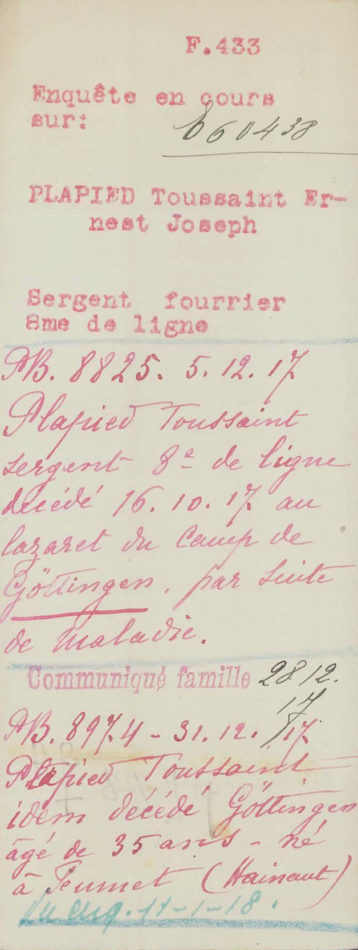 F.433
Enquête en cours
sur:
660438
PLAPIED Toussaint Er-
nest Joseph
Sergent fourrier
8me de ligne
PB. 8825. 5.12.17
Plapied Toussaint
sergent 8e de ligne
décédé 16.10.17 au
lazaret du Camp de
Göttingen, par suite
de maladie.
Communiqué famille 28 12.
17
PB. 8974 - 31.12.17
Plapied Toussaint
idem décédé Göttingen
âgé de 35 ans - né
à Jeumet (Hainaut)
11-1-18.